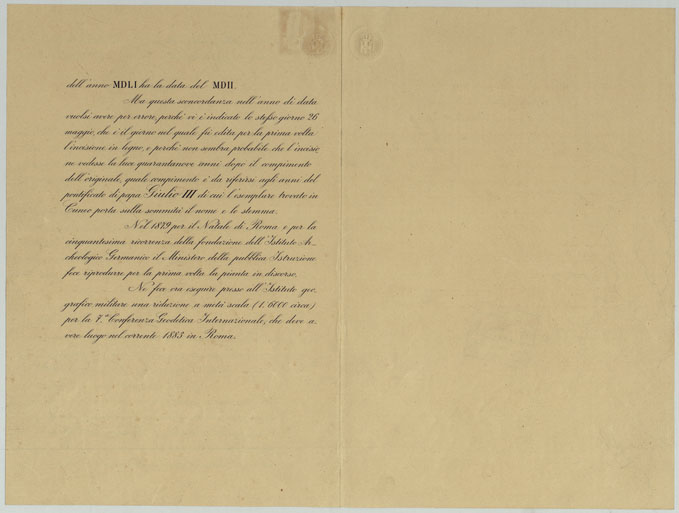 dell'anno MDLI ha la data del MDII.
Ma questa sconcordanza nell'anno di data
vuolsi avere per errore, perchè vi è indicato lo stesso giorno 26
maggio, che è il giorno nel quale fù edita per la prima volta
l'incisione in legno, e perchè non sembra probabile che l'incisio
ne vedesse la luce quarantanove anni dopo il compimento
dell'originale, quale compimento è da riferirsi agli anni del
pontificato di papa Giulio III di cui l'esemplare trovato in
Cuneo porta sulla sommità il nome e lo stemma.
Nel 1879 per il Natale di Roma e per la
cinquantesima ricorrenza della fondazione dell'Istituto Ar-
cheologico Germanico il Ministero della pubblica Istruzione
fece riprodurre per la prima volta la pianta in discorso.
Ne fece ora eseguire presso all'Istituto geo-
grafico militare una riduzione a metà scala (1. 6000 circa)
per la 7.ª Conferenza Geodetica Internazionale, che deve a-
vere luogo nel corrente 1883 in Roma.